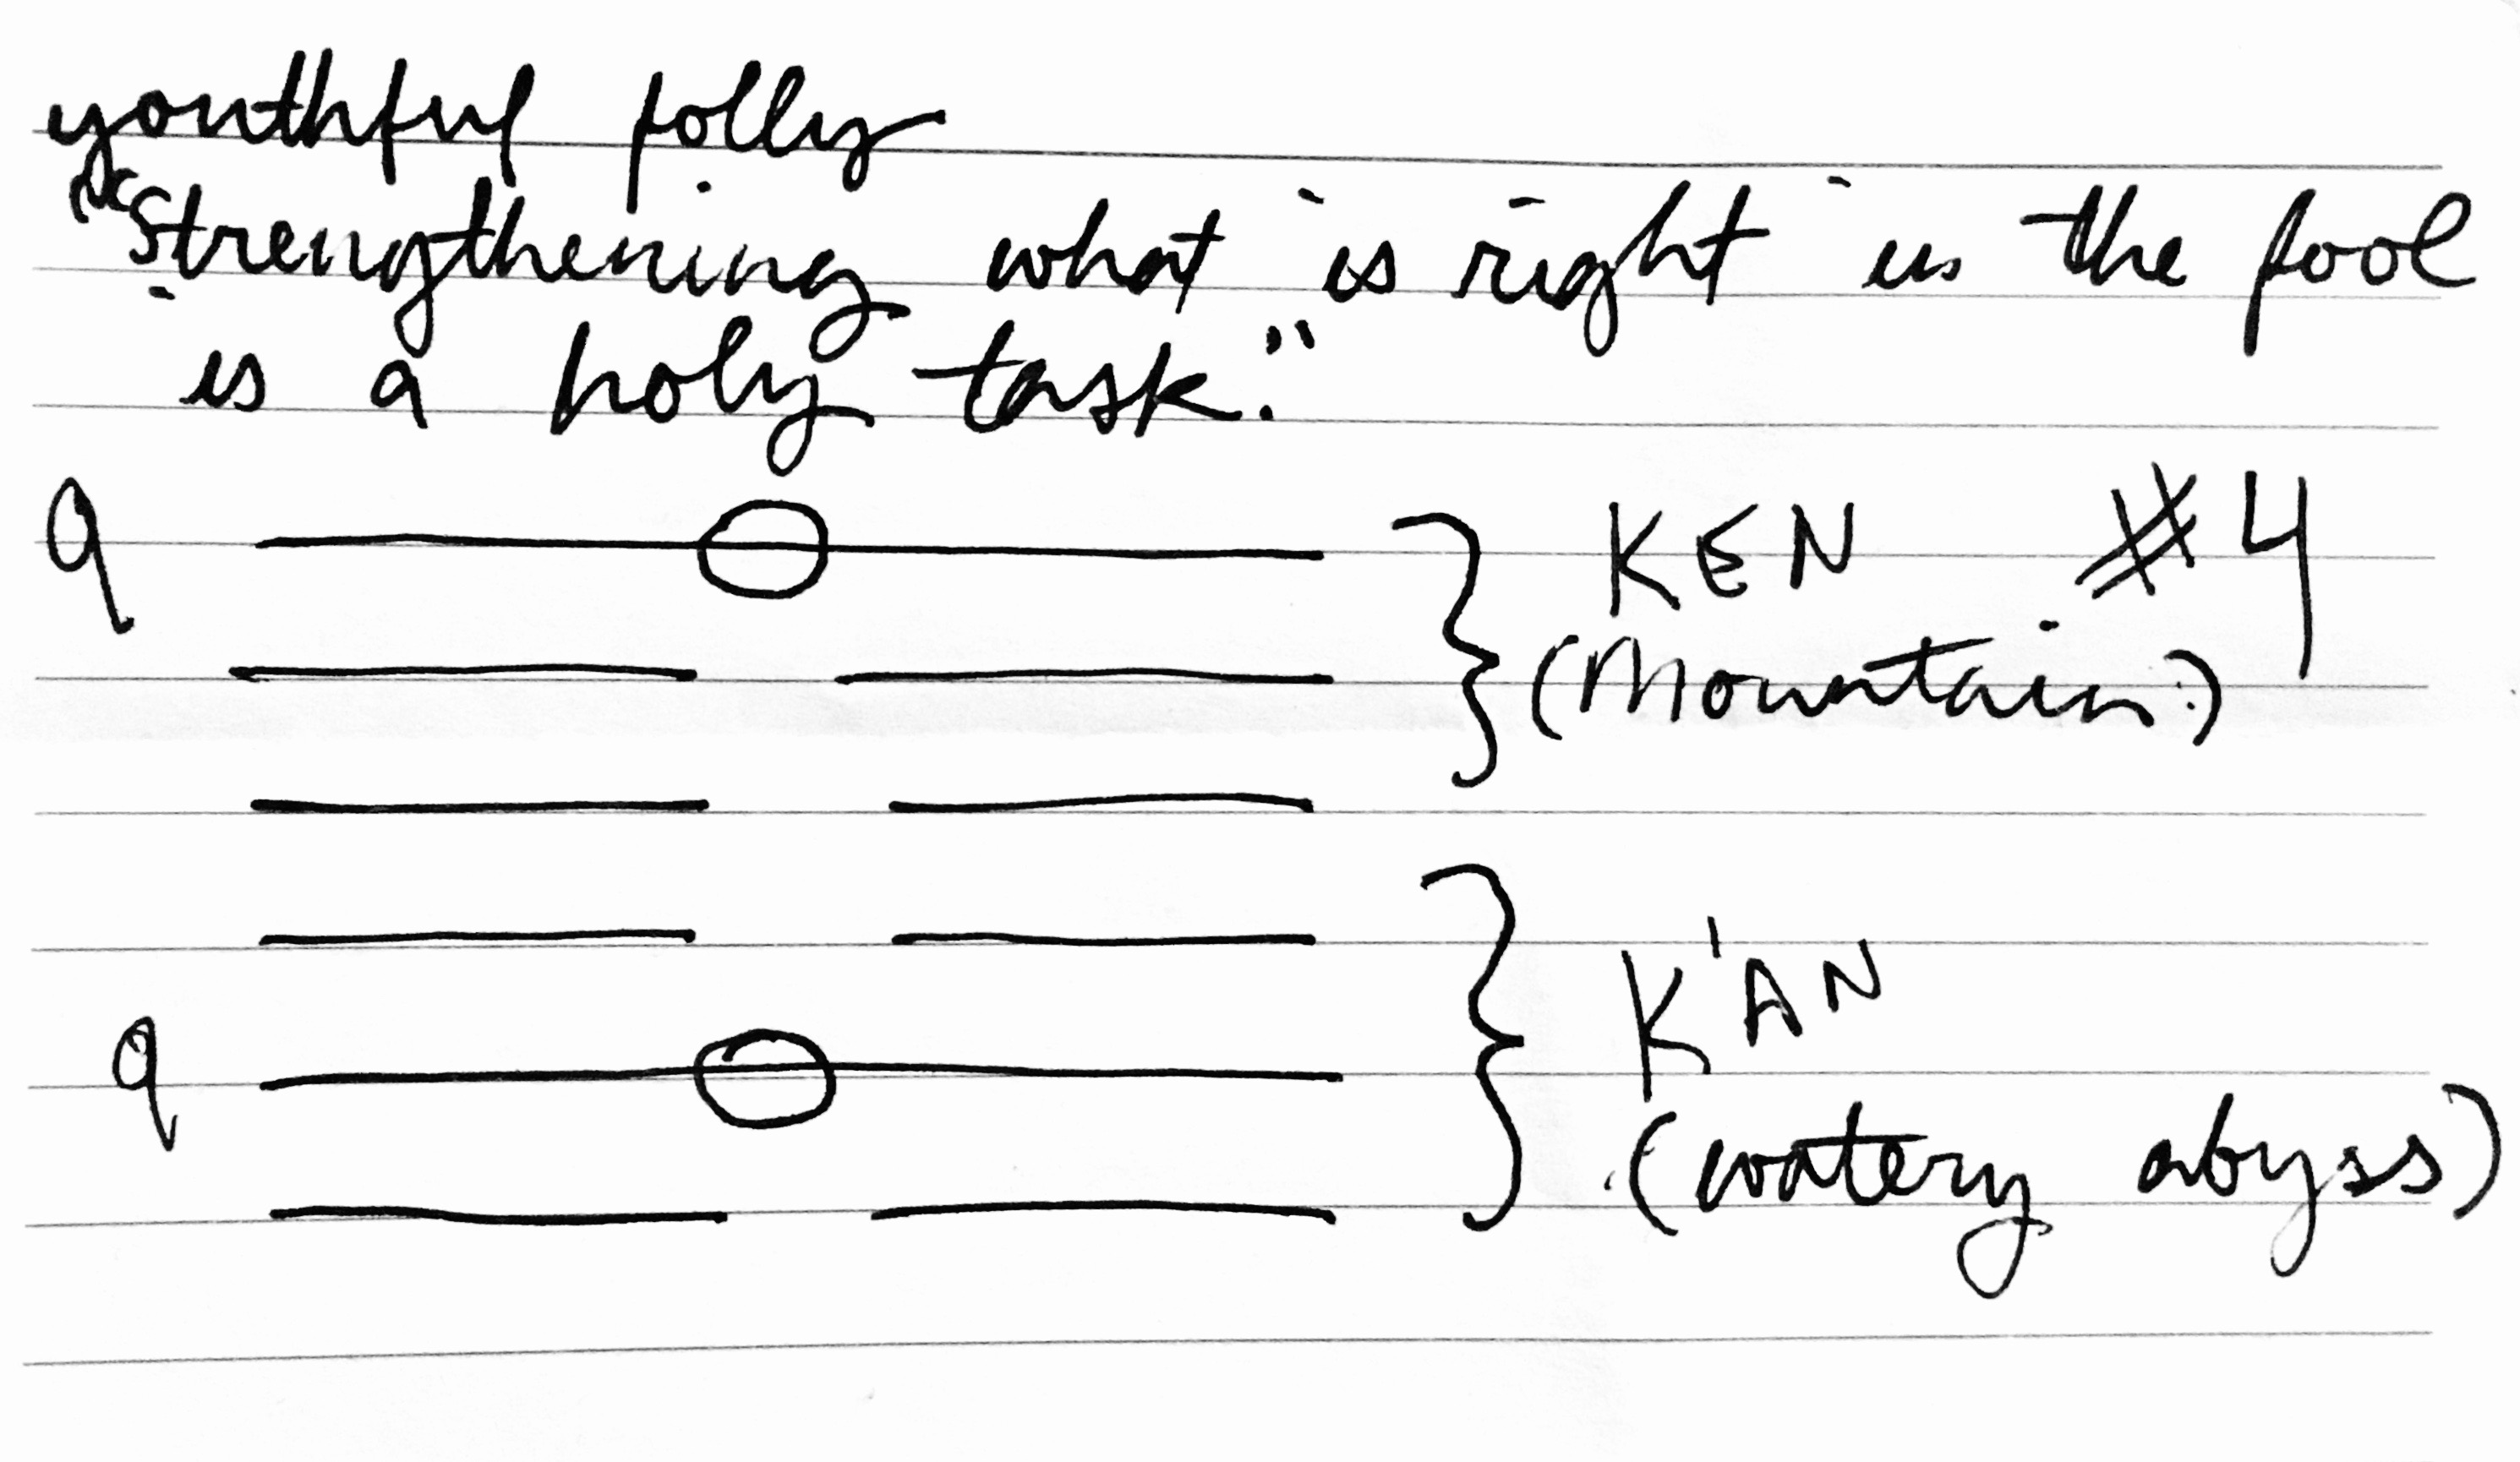 youthful folly
"Strengthening what is right in the fool
is a holy task."
9 KEN #4
(Mountain)
9 K'AN
(watery abyss)